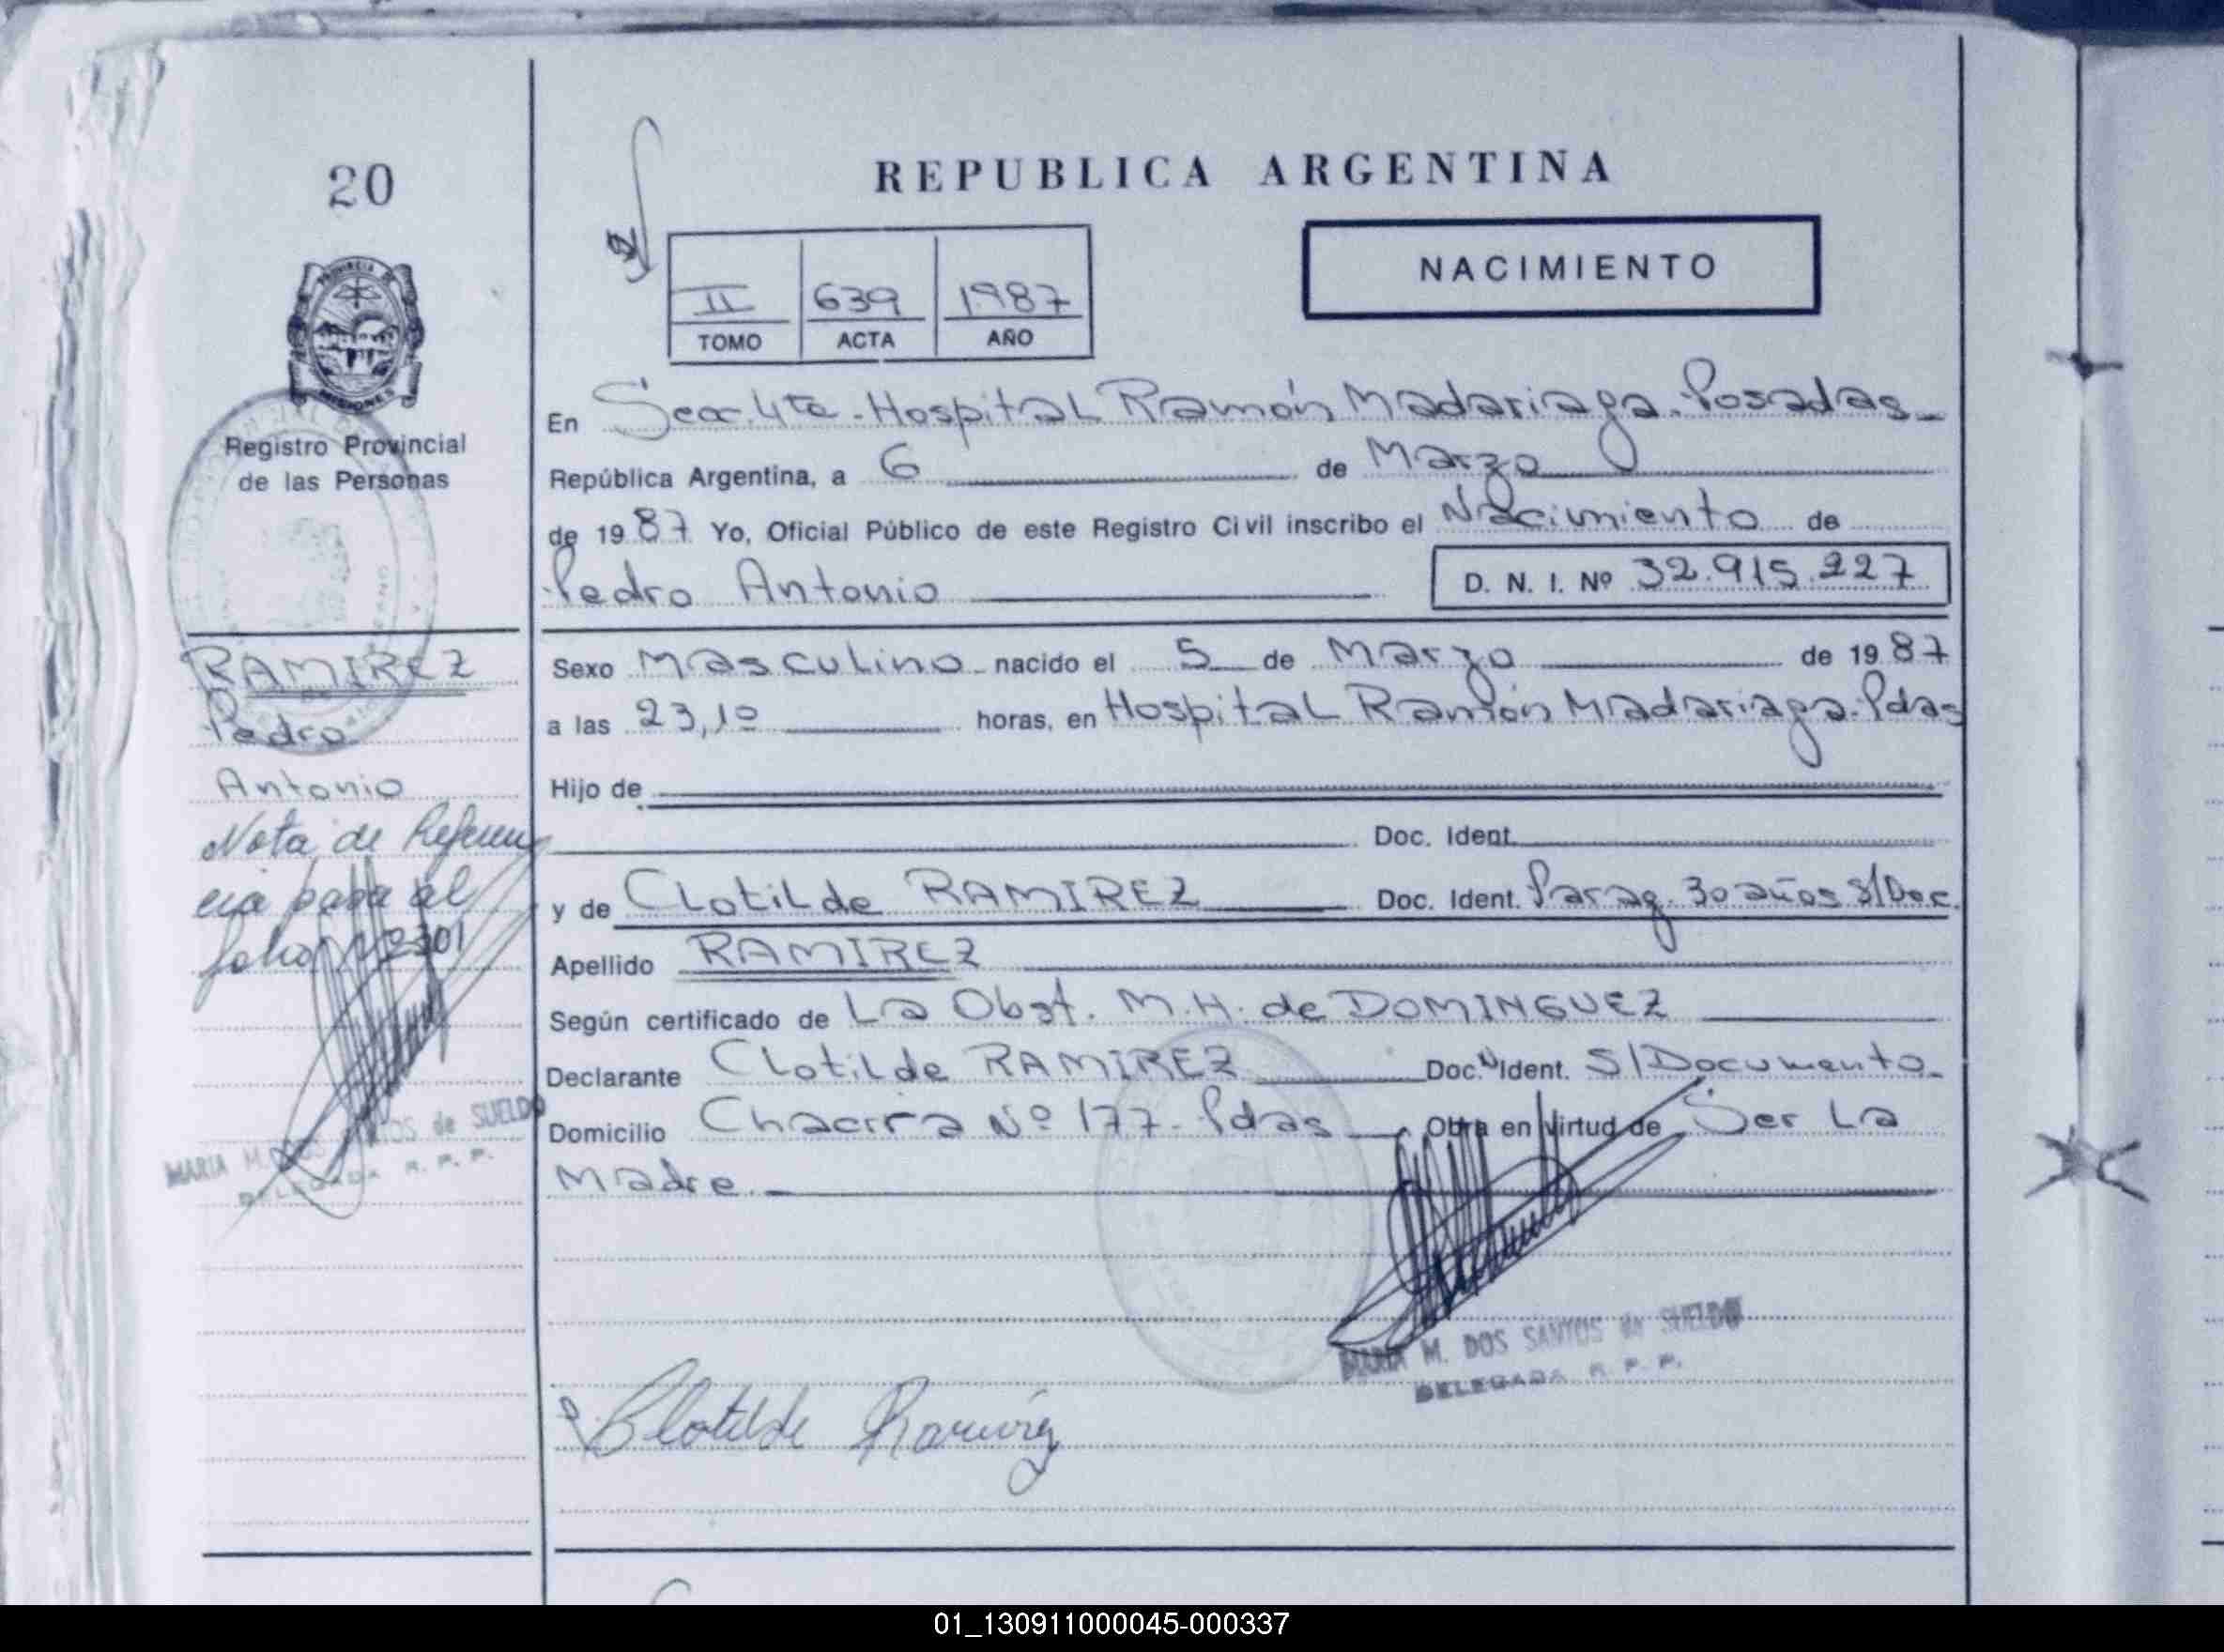 20
REPUBLICA ARGENTINA
NACIMIENTO
II 639 1987
TOMO ACTA AÑO
PROVINCIA DE
MISIONES
Registro Provincial
de las Personas
En Secc. 4ta - Hospital Ramón Madariaga. Posadas
República Argentina, a 6 de Marzo
de 1987 Yo, Oficial Público de este Registro Civil inscribo el Nacimiento de
Pedro Antonio D. N. I. Nº 32.915.227
RAMIREZ
Pedro
Antonio
Nota de Referen
cia pasa al
folio Nº 301
MARIA M. DOS SANTOS de SUELDO
DELEGADA R. P. P.
Sexo Masculino nacido el 5 de Marzo de 1987
a las 23,10 horas, en Hospital Ramón Madariaga. Pdas
Hijo de
Doc. Ident.
y de Clotilde RAMIREZ Doc. Ident. Parag. 30 años S/Doc.
Apellido RAMIREZ
Según certificado de La Obst. M.H. de DOMINGUEZ
Declarante Clotilde RAMIREZ Doc. Ident. S/Documento
Domicilio Chacrra Nº 177 - Pdas Obra en Virtud de Ser La
Madre.
MARIA M. DOS SANTOS de SUELDO
DELEGADA R. P. P.
Clotilde Ramirez
01_130911000045-000337